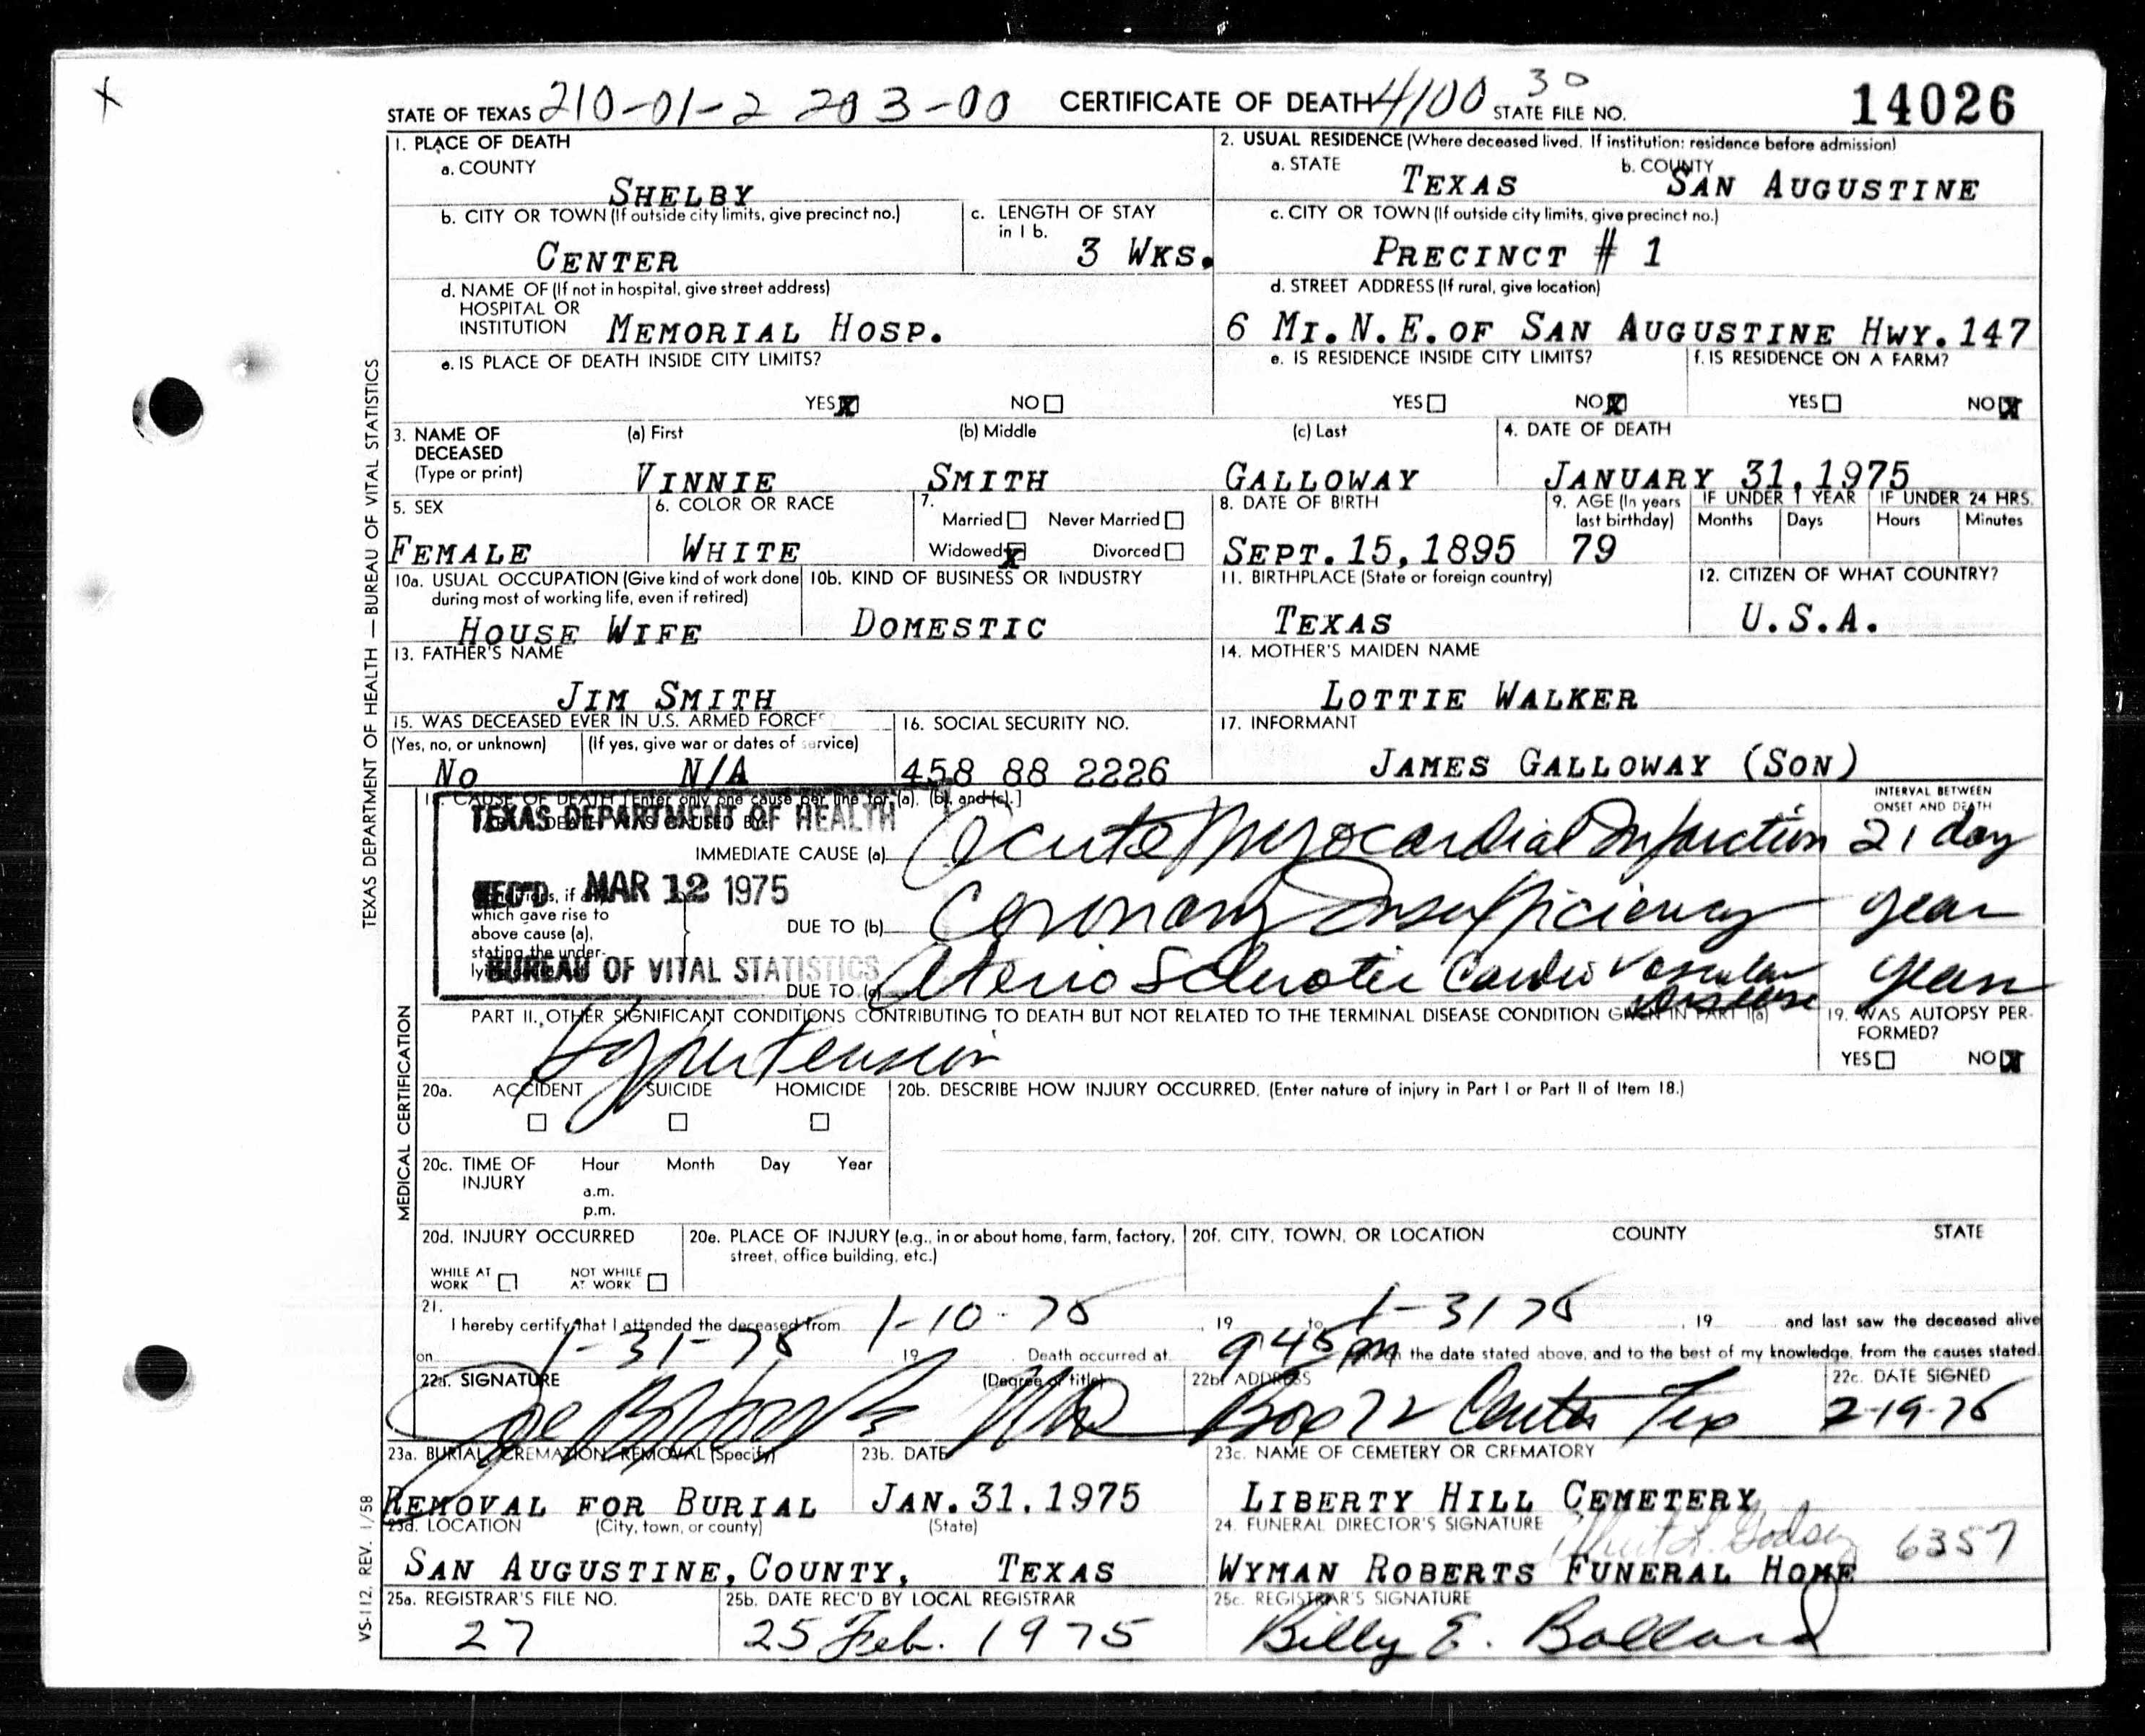 STATE OF TEXAS 210-01-2 203-00 CERTIFICATE OF DEATH 4100 30 STATE FILE NO. 14026
TEXAS DEPARTMENT OF HEALTH — BUREAU OF VITAL STATISTICS
1. PLACE OF DEATH
a. COUNTY
SHELBY
2. USUAL RESIDENCE (Where deceased lived. If institution: residence before admission)
a. STATE TEXAS b. COUNTY SAN AUGUSTINE
b. CITY OR TOWN (If outside city limits, give precinct no.)
CENTER
c. LENGTH OF STAY in 1 b.
3 WKS.
c. CITY OR TOWN (If outside city limits, give precinct no.)
PRECINCT # 1
d. NAME OF (If not in hospital, give street address)
HOSPITAL OR
INSTITUTION MEMORIAL HOSP.
d. STREET ADDRESS (If rural, give location)
6 MI. N.E. OF SAN AUGUSTINE HWY. 147
e. IS PLACE OF DEATH INSIDE CITY LIMITS?
YES X NO
e. IS RESIDENCE INSIDE CITY LIMITS?
YES NO X
f. IS RESIDENCE ON A FARM?
YES NO X
3. NAME OF DECEASED (Type or print)
(a) First (b) Middle (c) Last
VINNIE SMITH GALLOWAY
4. DATE OF DEATH
JANUARY 31, 1975
5. SEX
FEMALE
6. COLOR OR RACE
WHITE
7.
Married Never Married
Widowed X Divorced
8. DATE OF BIRTH
SEPT. 15, 1895
9. AGE (In years last birthday)
79
IF UNDER 1 YEAR
Months Days
IF UNDER 24 HRS.
Hours Minutes
10a. USUAL OCCUPATION (Give kind of work done
during most of working life, even if retired)
HOUSE WIFE
10b. KIND OF BUSINESS OR INDUSTRY
DOMESTIC
11. BIRTHPLACE (State or foreign country)
TEXAS
12. CITIZEN OF WHAT COUNTRY?
U.S.A.
13. FATHER'S NAME
JIM SMITH
14. MOTHER'S MAIDEN NAME
LOTTIE WALKER
15. WAS DECEASED EVER IN U.S. ARMED FORCES
(Yes, no, or unknown) (If yes, give war or dates of service)
No N/A
16. SOCIAL SECURITY NO.
458 88 2226
17. INFORMANT
JAMES GALLOWAY (SON)
MEDICAL CERTIFICATION
18. CAUSE OF DEATH [Enter only one cause per line for (a), (b), and (c).]
DEATH WAS CAUSED BY:
TEXAS DEPARTMENT OF HEALTH
REC'D MAR 12 1975
BUREAU OF VITAL STATISTICS
INTERVAL BETWEEN
ONSET AND DEATH
IMMEDIATE CAUSE (a) Acute Myocardial Infarction 21 day
Conditions, if any,
which gave rise to
above cause (a),
stating the under-
DUE TO (b) Coronary Insufficiency year
DUE TO (c) Aterio Sclerotic Cardio Vascular Disease years
PART II. OTHER SIGNIFICANT CONDITIONS CONTRIBUTING TO DEATH BUT NOT RELATED TO THE TERMINAL DISEASE CONDITION GIVEN IN PART I(a)
Hypertension
19. WAS AUTOPSY PER-
FORMED?
YES NO X
20a. ACCIDENT SUICIDE HOMICIDE
20b. DESCRIBE HOW INJURY OCCURRED. (Enter nature of injury in Part I or Part II of Item 18.)
20c. TIME OF INJURY
Hour Month Day Year
a.m.
p.m.
20d. INJURY OCCURRED
WHILE AT WORK NOT WHILE AT WORK
20e. PLACE OF INJURY (e.g., in or about home, farm, factory,
street, office building, etc.)
20f. CITY, TOWN, OR LOCATION COUNTY STATE
21.
I hereby certify that I attended the deceased from 1-10-75, 19 to 1-31 75, 19 and last saw the deceased alive
on 1-31-75 19 . Death occurred at 9 45 pm on the date stated above, and to the best of my knowledge, from the causes stated.
22a. SIGNATURE (Degree or title)
Joe B MD
22b. ADDRESS
Box 72 Center Tex
22c. DATE SIGNED
2-19-75
23a. BURIAL, CREMATION, REMOVAL (Specify)
REMOVAL FOR BURIAL
23b. DATE
JAN. 31, 1975
23c. NAME OF CEMETERY OR CREMATORY
LIBERTY HILL CEMETERY
23d. LOCATION (City, town, or county) (State)
SAN AUGUSTINE, COUNTY, TEXAS
24. FUNERAL DIRECTOR'S SIGNATURE
Godsey 6357
WYMAN ROBERTS FUNERAL HOME
25a. REGISTRAR'S FILE NO.
27
25b. DATE REC'D BY LOCAL REGISTRAR
25 Feb. 1975
25c. REGISTRAR'S SIGNATURE
Billy E. Ballard
VS-112 REV. 1/58